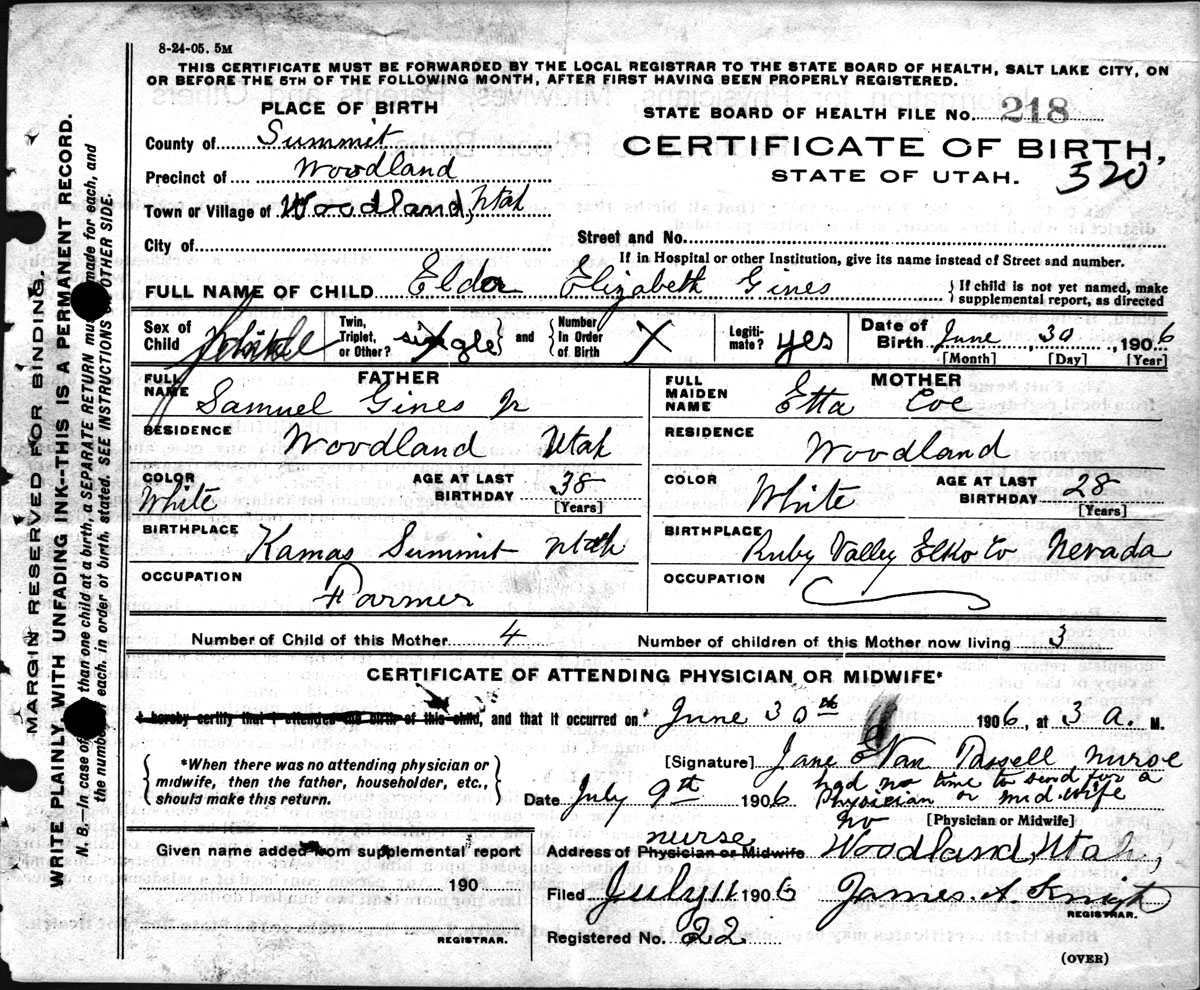 8-24-05. 5M
THIS CERTIFICATE MUST BE FORWARDED BY THE LOCAL REGISTRAR TO THE STATE BOARD OF HEALTH, SALT LAKE CITY, ON
OR BEFORE THE 5TH OF THE FOLLOWING MONTH, AFTER FIRST HAVING BEEN PROPERLY REGISTERED.
PLACE OF BIRTH
STATE BOARD OF HEALTH FILE No. 218
County of Summit
CERTIFICATE OF BIRTH,
Precinct of Woodland
STATE OF UTAH. 520
Town or Village of Woodland, Utah
City of
Street and No.
If in Hospital or other Institution, give its name instead of Street and number.
FULL NAME OF CHILD Elda Elizabeth Gines {If child is not yet named, make supplemental report, as directed
Sex of Child Twin, Triplet, or Other? single } and { Number In Order of Birth X Legiti-mate? yes Date of Birth June, 30, 1906
[Month] [Day] [Year]
FATHER
FULL NAME Samuel Gines Jr
RESIDENCE Woodland Utah
COLOR White AGE AT LAST BIRTHDAY 38 [Years]
BIRTHPLACE Kamas Summit Utah
OCCUPATION Farmer
MOTHER
FULL MAIDEN NAME Etta Coe
RESIDENCE Woodland
COLOR White AGE AT LAST BIRTHDAY 28 [Years]
BIRTHPLACE Ruby Valley Elko Co Nevada
OCCUPATION
Number of Child of this Mother 4 Number of children of this Mother now living 3
CERTIFICATE OF ATTENDING PHYSICIAN OR MIDWIFE*
I hereby certify that I attended the birth of this child, and that it occurred on June 30th 1906, at 3 a. M.
*When there was no attending physician or
midwife, then the father, householder, etc.,
should make this return.
[Signature] Jane E Van Tassell nurse
had no time to send for a
Date July 9th 1906 Physician or mid-wife
no [Physician or Midwife]
nurse
Address of Physician or Midwife Woodland, Utah,
Given name added from supplemental report
190
REGISTRAR.
Filed July 11 1906 James A. Knight
REGISTRAR.
Registered No. 22
(OVER)
MARGIN RESERVED FOR BINDING.
WRITE PLAINLY, WITH UNFADING INK--THIS IS A PERMANENT RECORD.
N. B.—In case of than one child at a birth, a SEPARATE RETURN must made for each, and
the number of each, in order of birth, stated. SEE INSTRUCTIONS OTHER SIDE.